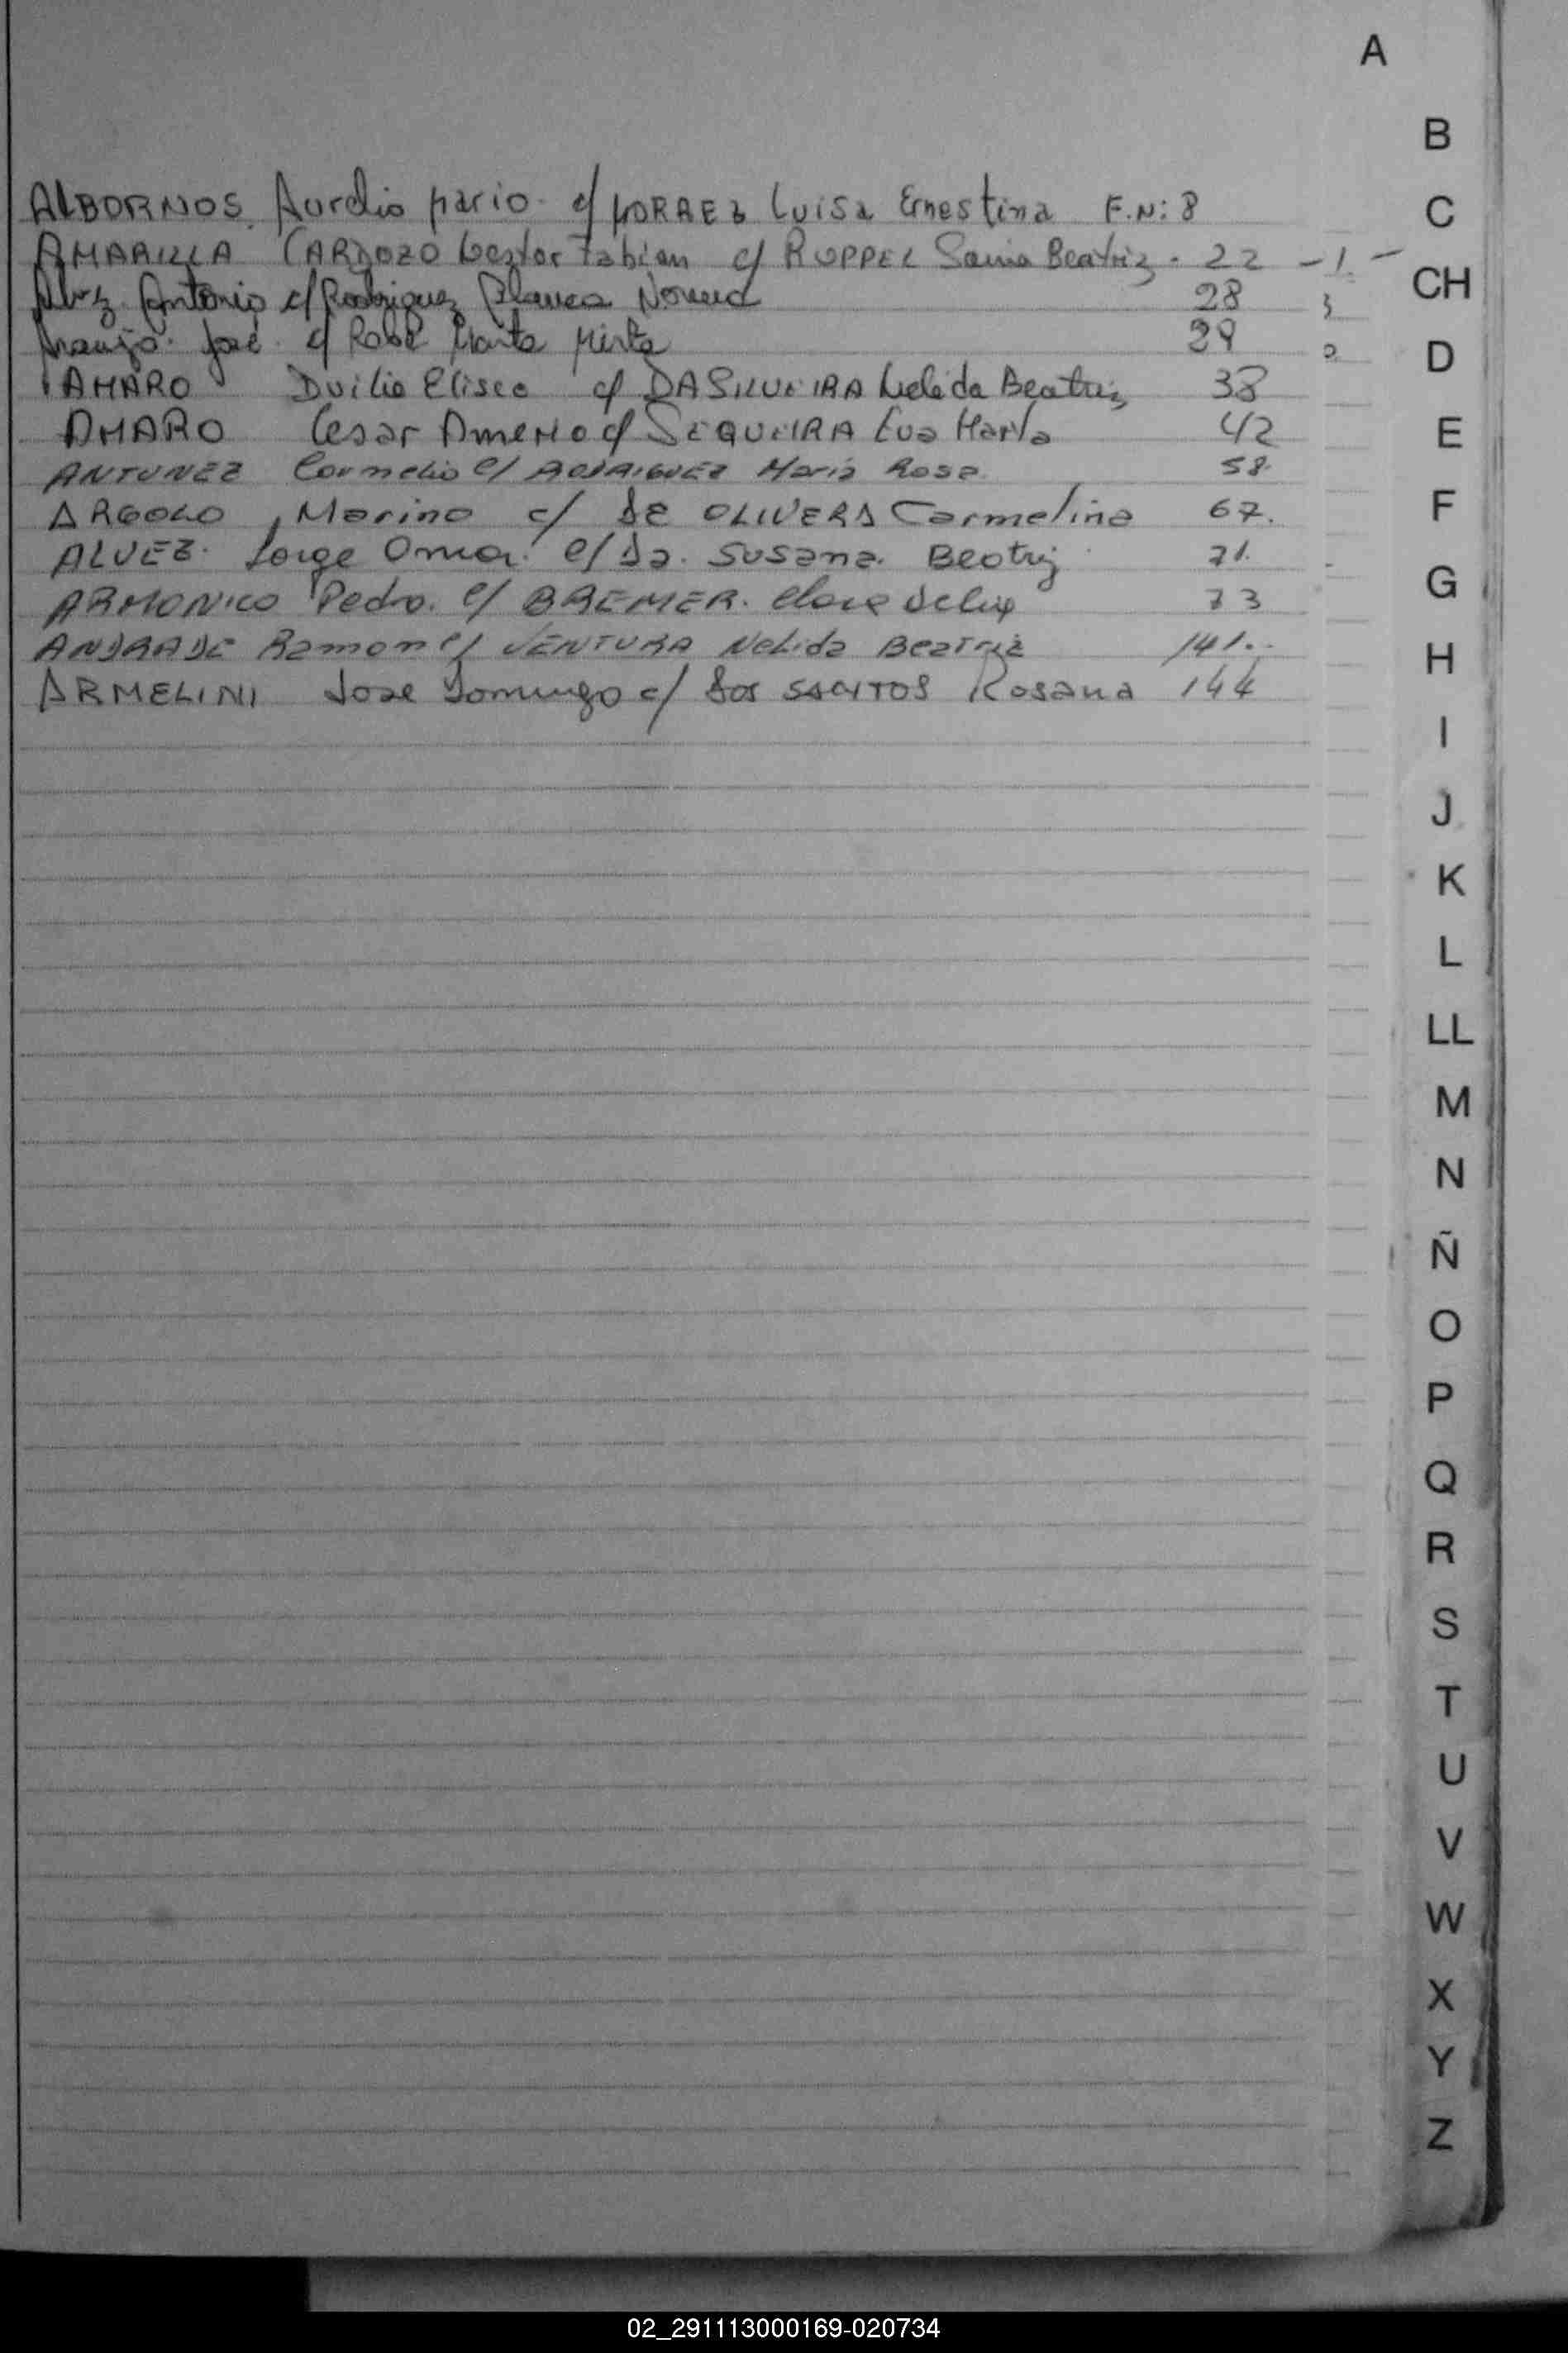 A
ALBORNOS. Aurelio Mario. c/ MORAEZ Luisa Ernestina F.N: 8
AMARILLA CARDOZO Nestor Fabian c/ RUPPEL Beatriz - 22 - 1 -
Antonio c/ Rodriguez Blanca Norma 28
Araujo José c/ Marta Mirta 29
AMARO Duilio Eliseo c/ DA SILVEIRA Nelida Beatriz 38
AMARO Cesar Americo c/ SEQUEIRA Eva Marta 42
ANTUNEZ Cornelio c/ RODRIGUEZ Maria Rosa 58
ARGOLO, Marino c/ DE OLIVERA Carmelina 67.
ALVEZ. Jorge Omar. c/ Da. Susana. Beatriz 71.
ARMONICO Pedro. c/ BREMER. 73
ANDRADE Ramon c/ VENTURA Nelida Beatriz 141..
ARMELINI Jose Domingo c/ Dos SANTOS Rosana 144
B
C
CH
D
E
F
G
H
I
J
K
L
LL
M
N
Ñ
O
P
Q
R
S
T
U
V
W
X
Y
Z
02_291113000169-020734